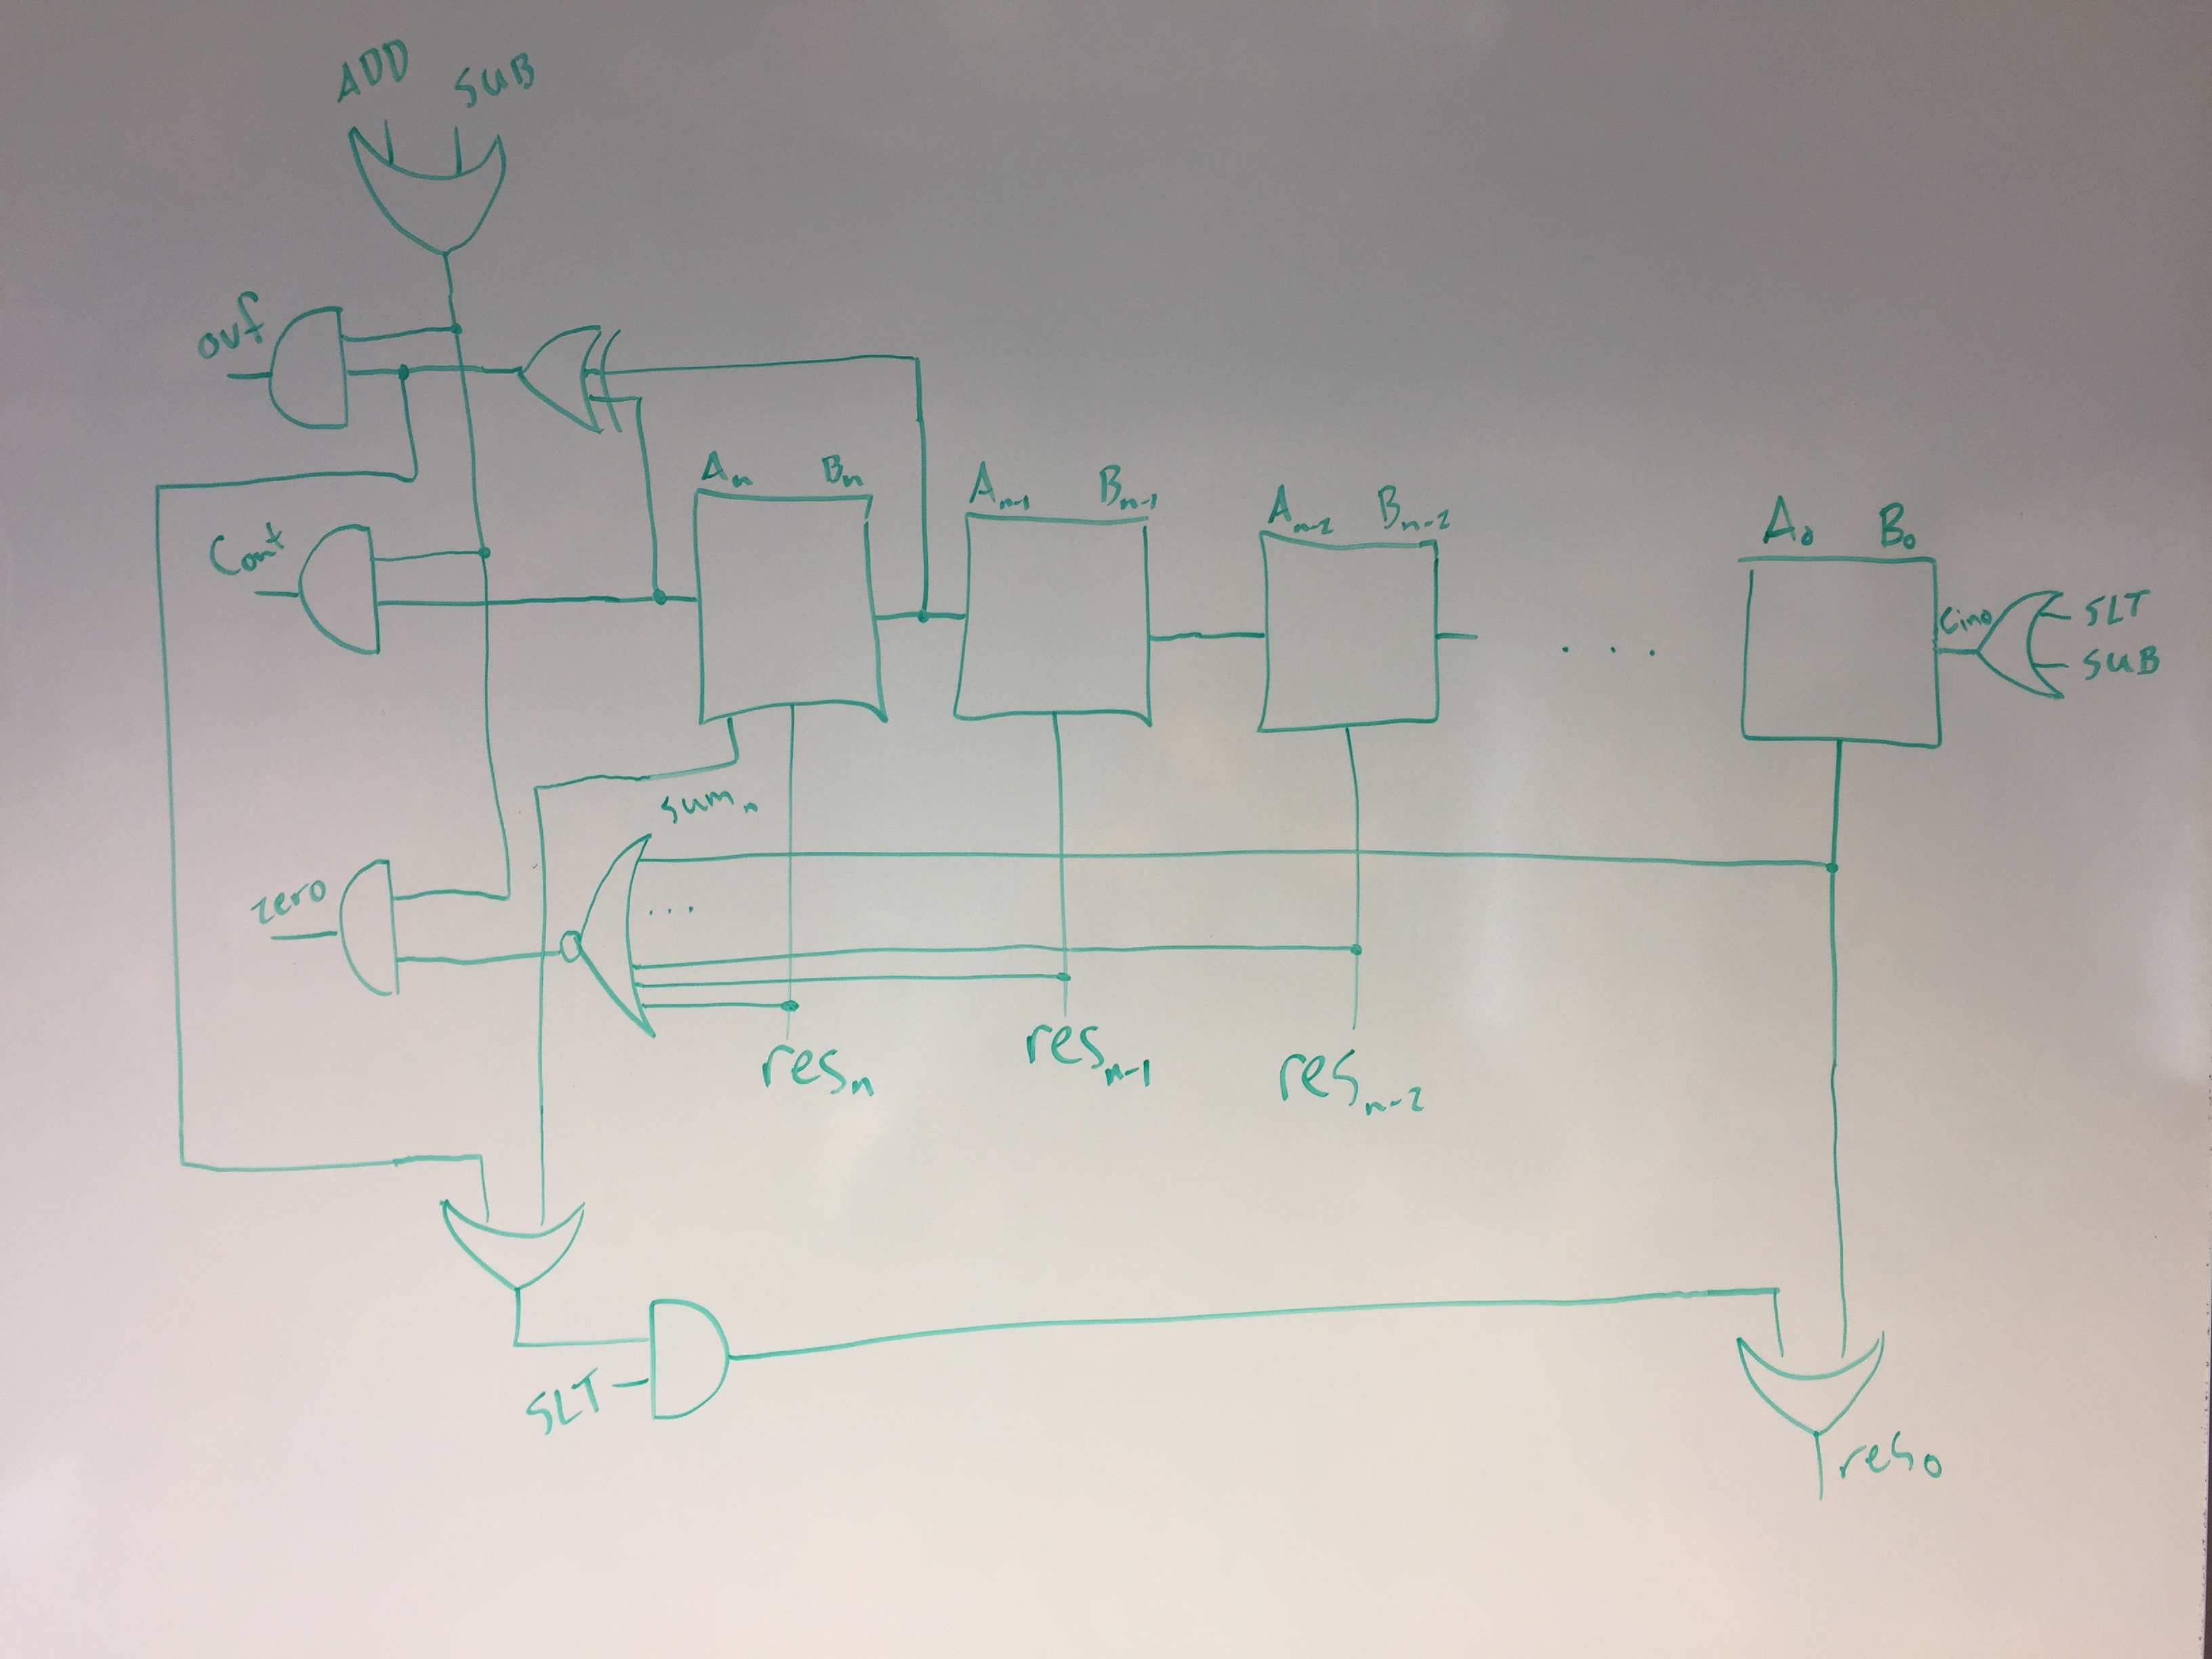 ADD SUB
ovf
An Bn An-1 Bn-1 An-2 Bn-2 A0 B0
Cout
Cin0 SLT
SUB
sumn
zero
...
resn resn-1 resn-2
SLT
res0